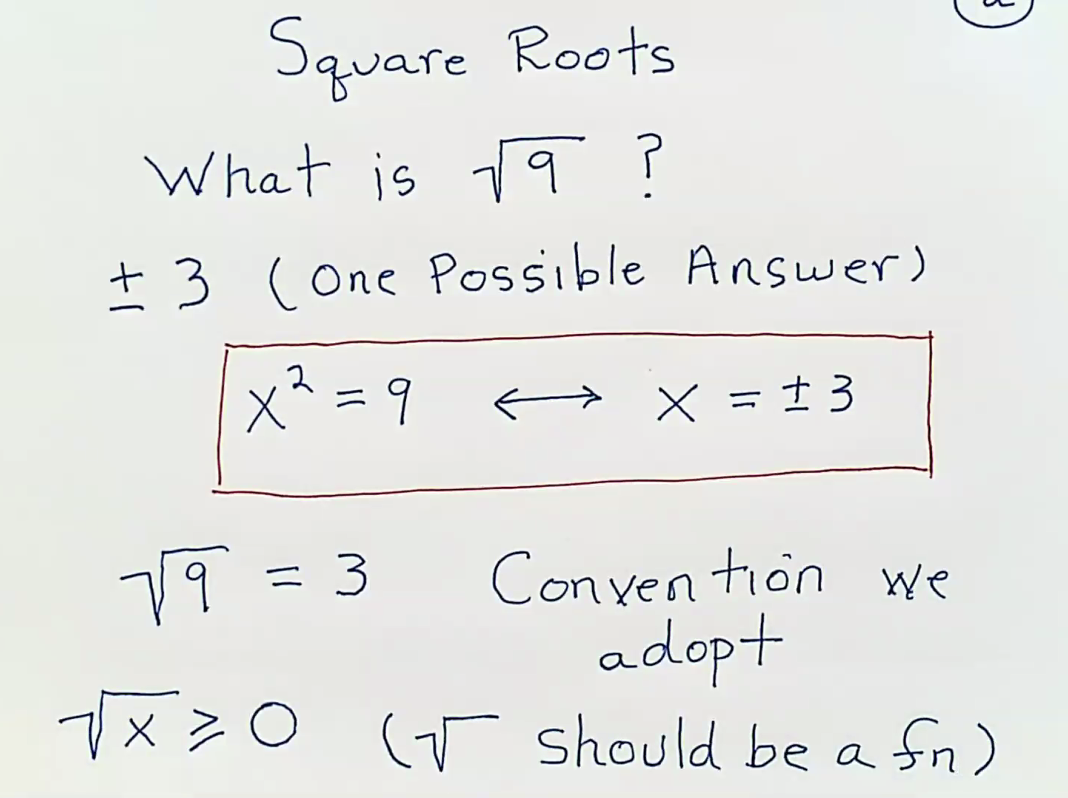 Square Roots
What is √9 ?
± 3 (One Possible Answer)
x² = 9 ⟷ x = ± 3
√9 = 3 Convention we
adopt
√x ⩾ 0 (√ should be a fn)